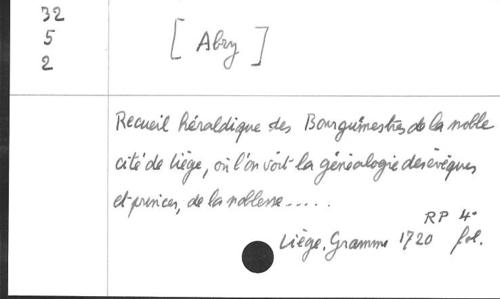 32
5
2
[ Abry ]
Recueil héraldique des Bourguimestres de la noble
cité de Liège, où l'on voit la généalogie des évêques
et princes, de la noblesse.....
RP 4°
Liège. Gramme 1720 fol.